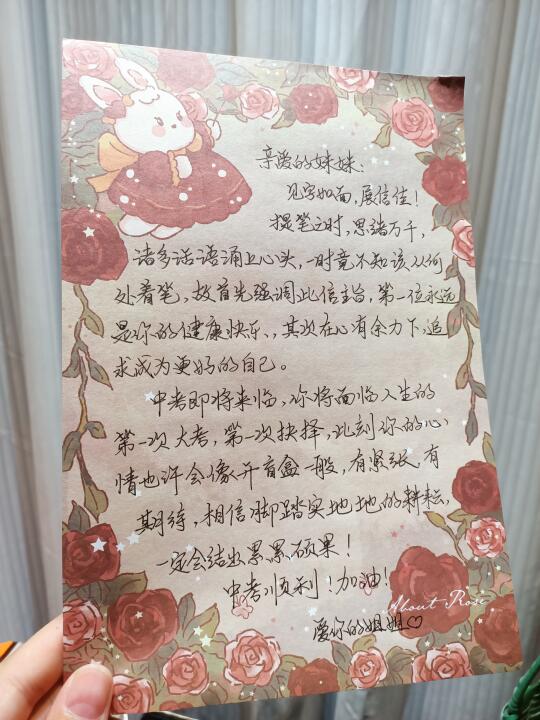 亲爱的妹妹：
见字如面，展信佳！
提笔之时，思绪万千，
诸多话语涌上心头，一时竟不知该从何
处着笔，故首先强调此信主旨，第一位永远
是你的健康快乐，其次在心有余力下，追
求成为更好的自己。
中考即将来临，你将面临人生的
第一次大考，第一次抉择，此刻你的心
情也许会像开盲盒一般，有紧张，有
期待，相信脚踏实地地的耕耘，
一定会结出累累硕果！
中考顺利！加油！
About Rose
爱你的姐姐♡